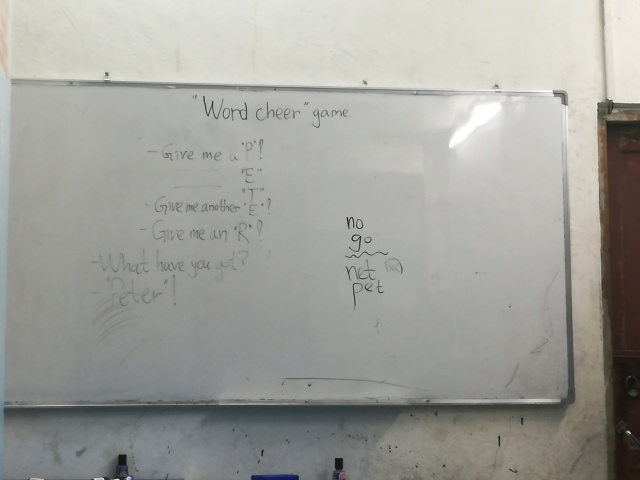 "Word cheer" game
- Give me a "P"!
"E"
"T"
- Give me another "E"!
- Give me an "R"!
- What have you got?
- "Peter"!
no
go
net
pet